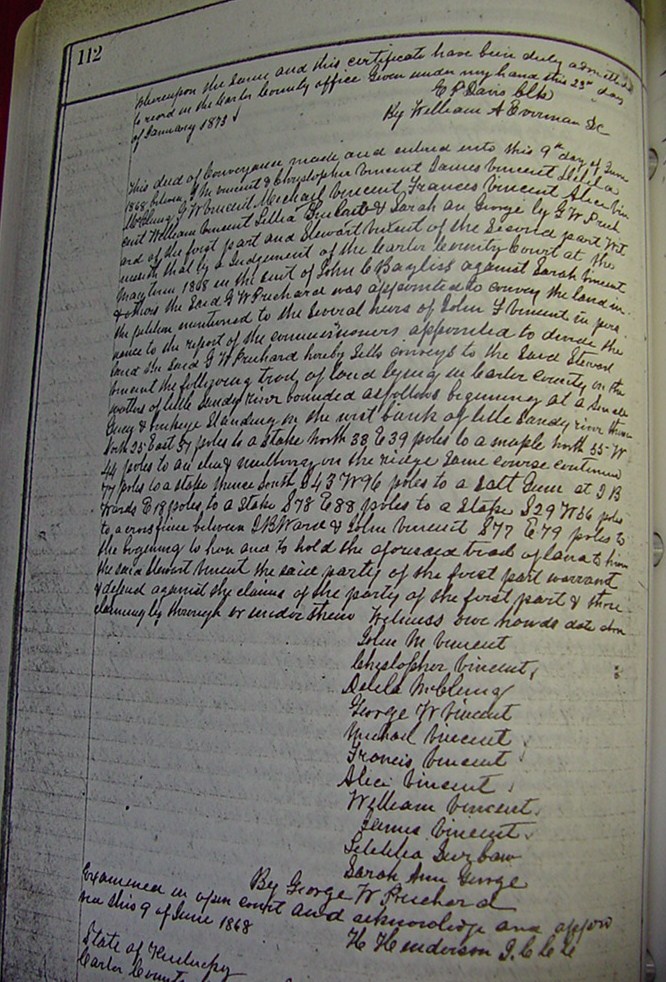 112
Whereupon the same and this certificate have been duly admitted
to record in the Carter County office Given under my hand this 23rd day
of January 1873
C P Davis Clk
By William A Overman DC
This deed of Conveyance made and entered into this 9th day of June
1868 between J M Vincent & Chrystopher Vincent James Vincent Delila
McClung G W Vincent Michael Vincent Francis Vincent Alice Vin
cent William Vincent & Sarah An George by G W Prich
ard of the first part and Stewart Vincent of the Second part Wit
nesseth that by a Judgement of the Carter County Court at the
May term 1868 in the suit of John C Bayliss against Sarah Vincent
& others the Said G W Prichard was appointed to convey the land in
the petition mentioned to the Several heirs of John F Vincent in pers
uance to the report of the commissioners appointed to divide the
land the Said G W Prichard hereby Sells conveys to the Said Steward
Vincent the following tract of land lying in Carter County on the
waters of little Sandy River bounded as follows beginning at a
& buckeye Standing on the west bank of little Sandy river thence
North 25 East 57 poles to a Stake North 38 E 39 poles to a maple North 55 W
44 poles to an elm & mulberry on the ridge Same course continued
77 poles to a stake thence South S 43 W 76 poles to a Salt Gum at J B
Words E 18 poles to a Stake S 78 E 88 poles to a Stake S 29 W 56 poles
to a cross fence between J B Ward & John Vincent S 77 E 79 poles to
the beginning to have and to hold the aforesaid tract of land to him
the said Stewart Vincent the said party of the first part warrant
& defend against the claims of the party of the first part & those
claiming by through or under them Witness our hands date above
John M Vincent
Chystopher Vincent
Delila McClung
George W Vincent
Michael Vincent
Francis Vincent
Alice Vincent
William Vincent
James Vincent
Sarah Ann George
By George W Prichard
Examined in open court and acknowledge and appro
ved this 9 of June 1868
H Henderson J.C.C.C
State of Kentucky
Carter County